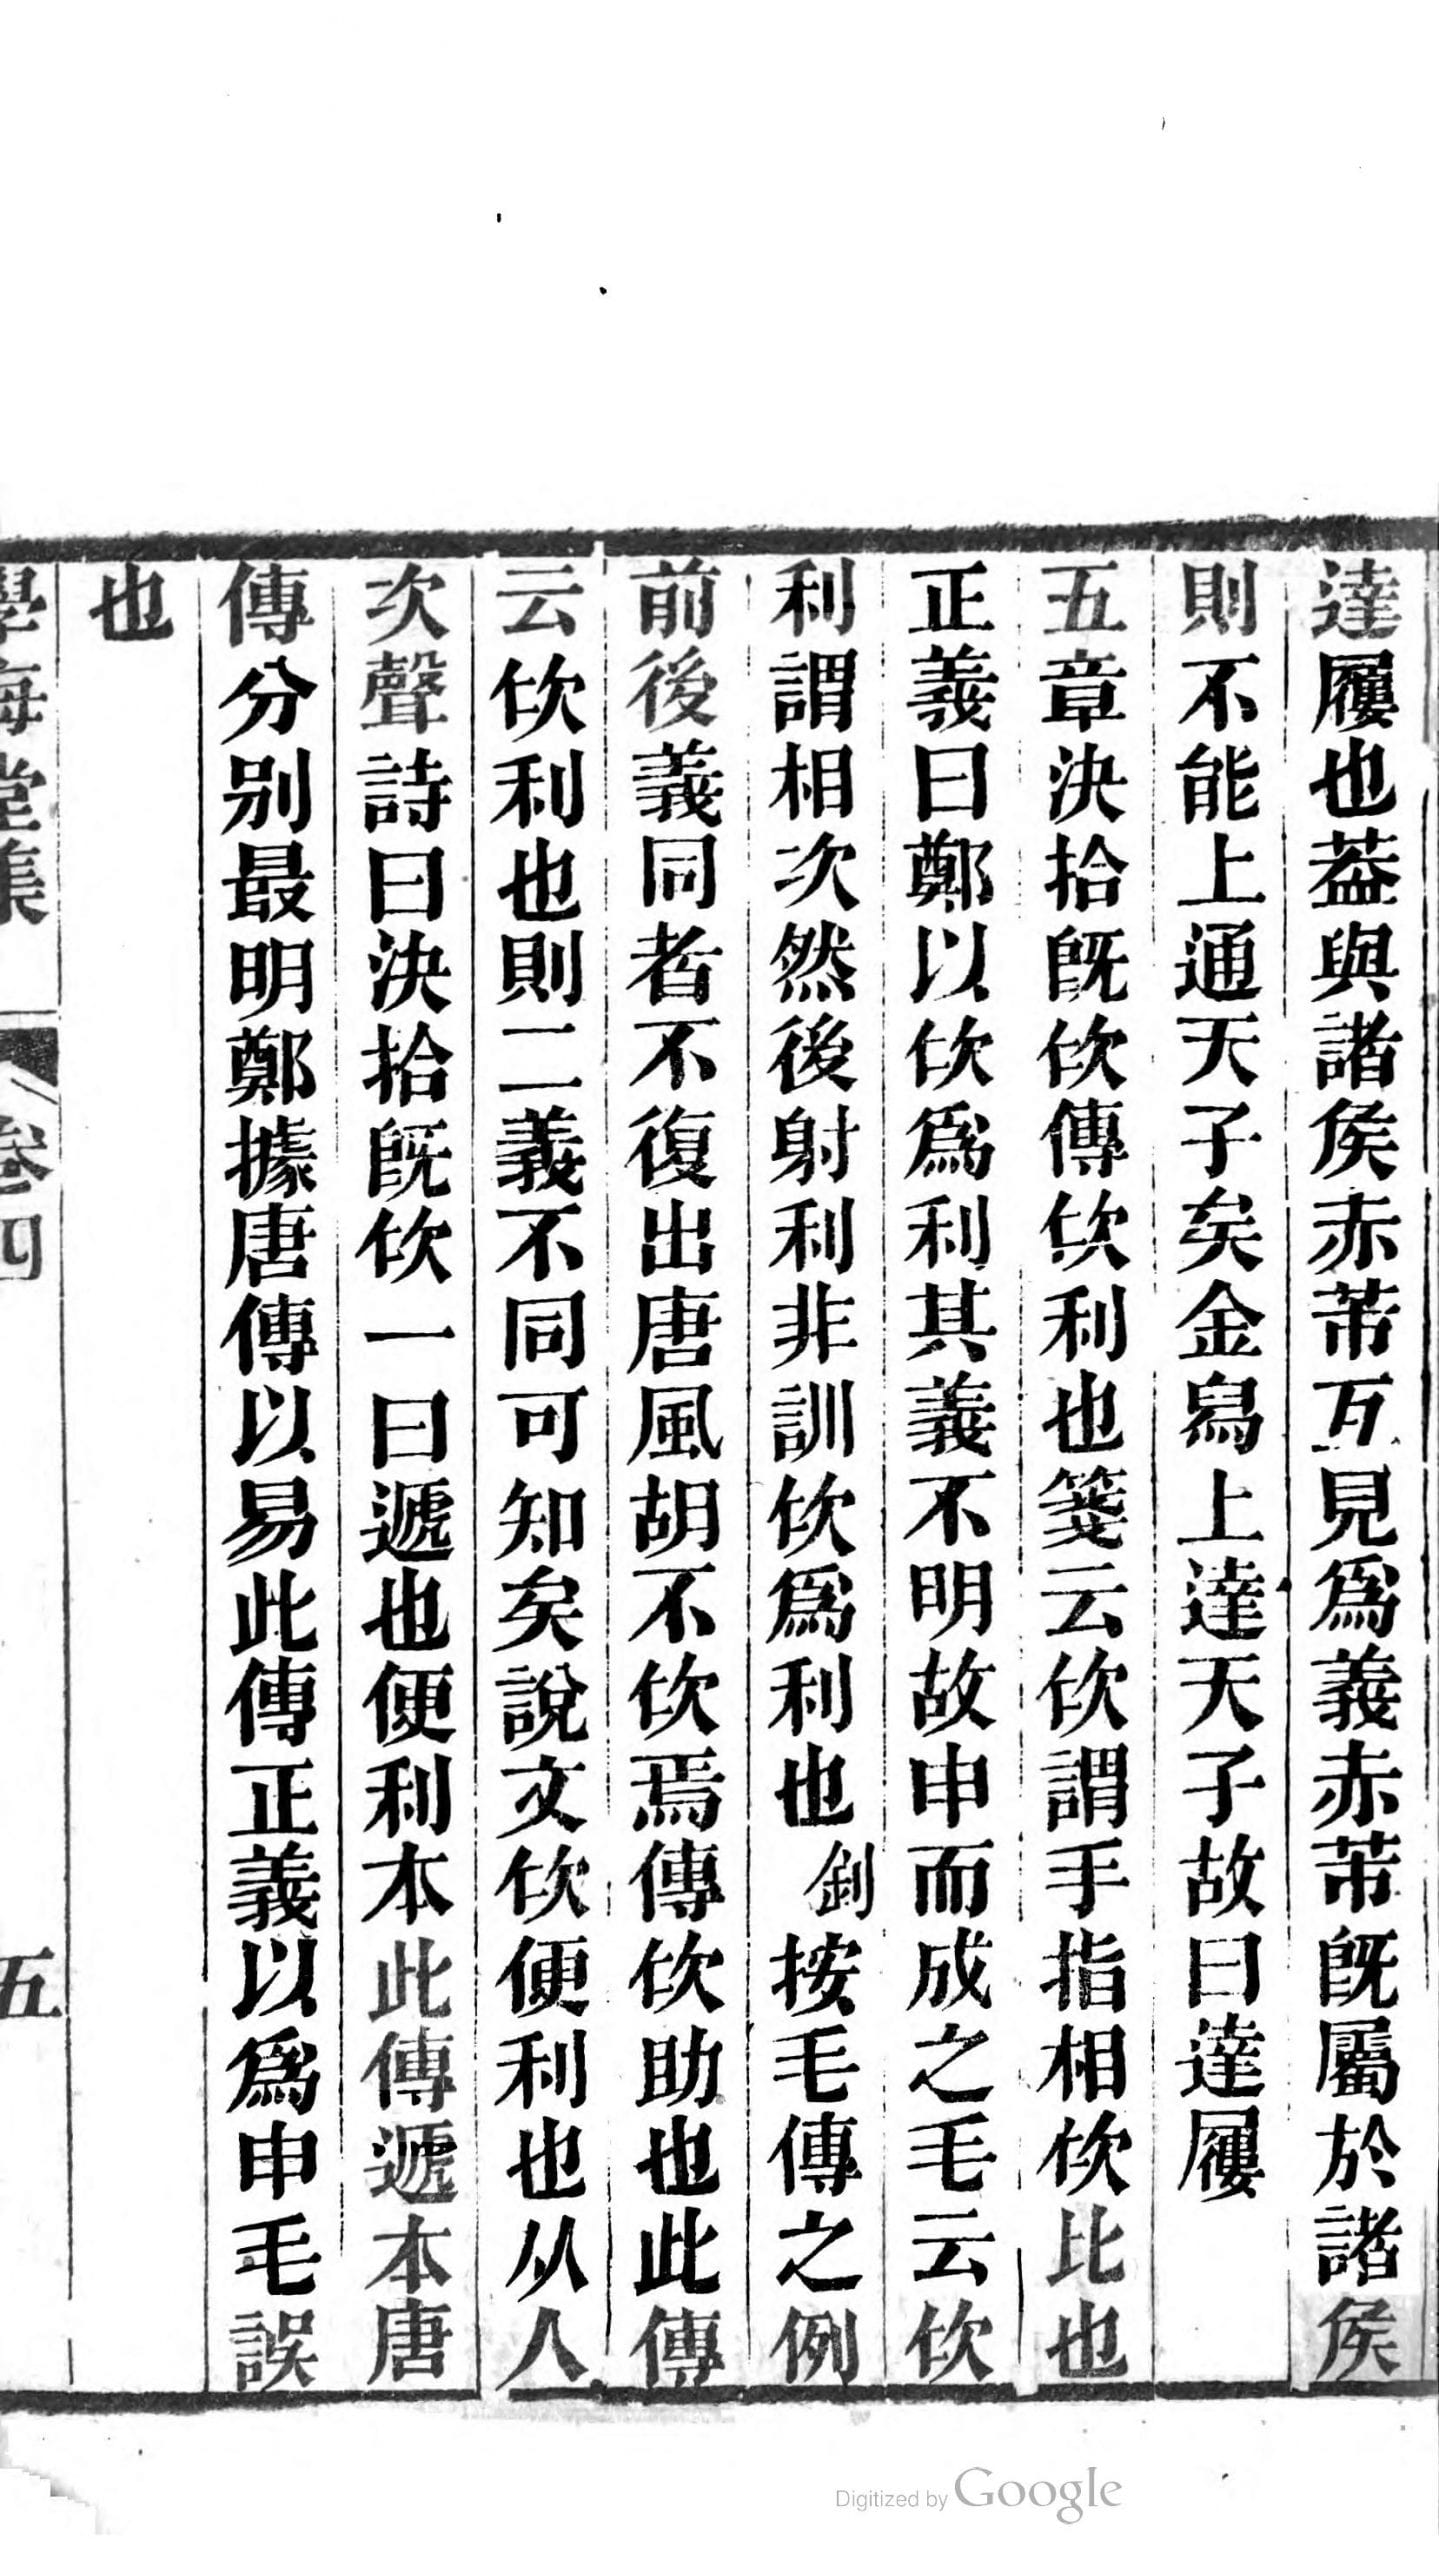 達屨也葢與諸侯赤芾互見爲義赤芾旣屬於諸侯
則不能上通天子矣金舄上達天子故曰達屨
五章決拾旣佽傳佽利也箋云佽謂手指相佽比也
正義曰鄭以佽爲利其義不明故申而成之毛云佽
利謂相次然後射利非訓佽爲利也釗按毛傳之例
前後義同者不復出唐風胡不佽焉傳佽助也此傳
云佽利也則二義不同可知矣說文佽便利也从人
次聲詩曰決拾旣佽一曰遞也便利本此傳遞本唐
傳分別最明鄭據唐傳以易此傳正義以爲申毛誤
也
學海堂集 卷四 五
Digitized by Google